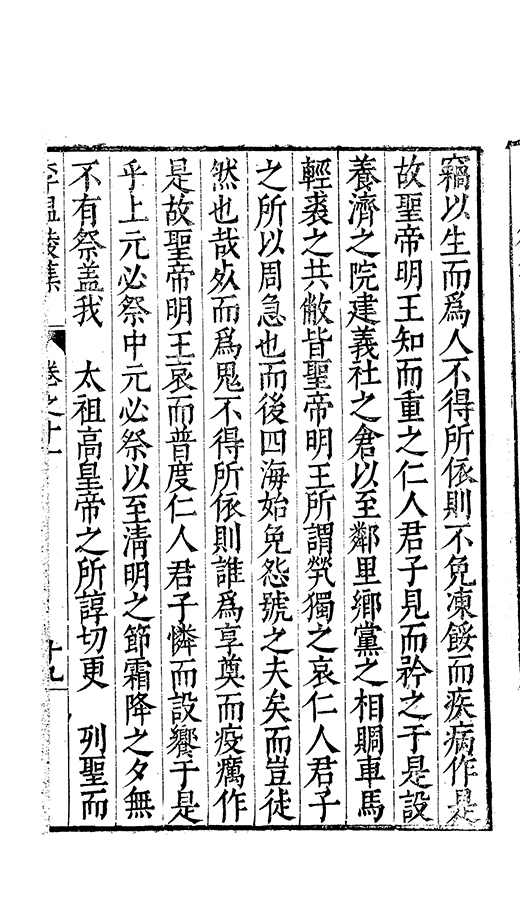 竊以生而爲人不得所依則不免凍餒而疾病作是
故聖帝明王知而重之仁人君子見而矜之于是設
養濟之院建義社之倉以至鄰里鄉黨之相賙車馬
輕裘之共敝皆聖帝明王所謂煢獨之哀仁人君子
之所以周急也而後四海始免怨號之夫矣而豈徒
然也哉夫而爲鬼不得所依則誰爲享奠而疫癘作
是故聖帝明王哀而普度仁人君子憐而設饗于是
乎上元必祭中元必祭以至清明之節霜降之夕無
不有祭盖我　太祖高皇帝之所諄切更　列聖而
李溫陵集　卷之十一　十九